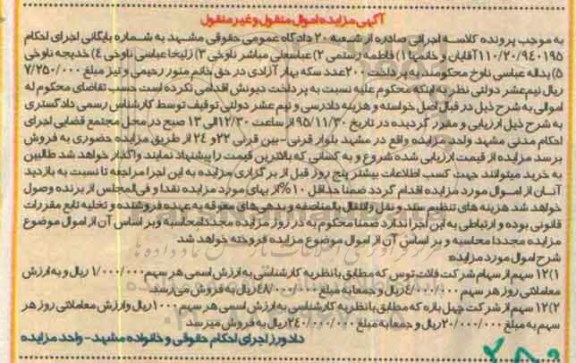 آگهی مزایده اموال منقول و غیر منقول
به موجب پرونده کلاسه اجرائی صادره از شعبه ۲۰ دادگاه عمومی حقوقی مشهد به شماره بایگانی اجرای احکام
۱۱۰/۲۰/۹۴۰۱۹۵ آقایان و خانمها ۱) فاطمه رستمی ۲) عباسعلی مباشر ناوخی ۳) زلیخا عباسی ناوخی ۴) خدیجه ناوخی
۵) یداله عباسی ناوخ محکومند به پرداخت ۲۰۰ عدد سکه بهار آزادی در حق خانم منور رحیمی و نیز مبلغ ۷/۲۵۰/۰۰۰
ریال نیم عشر دولتی نظر به اینکه محکوم علیه نسبت به پرداخت دیونش اقدامی نکرده است حسب تقاضای محکوم له
اموالی به شرح ذیل در قبال اصل خواسته و هزینه دادرسی و نیم عشر دولتی توقیف توسط کارشناس رسمی دادگستری
به شرح ذیل ارزیابی و مقرر گردیده در تاریخ ۹۵/۱۱/۳۰ از ساعت ۱۲/۳۰ الی ۱۳ صبح در محل مجتمع قضایی اجرای
احکام مدنی مشهد واحد مزایده واقع در مشهد بلوار قرنی - بین قرنی ۲۲ و ۲۴ از طریق مزایده حضوری به فروش
برسد مزایده از قیمت ارزیابی شده شروع و به کسانی که بالاترین قیمت را پیشنهاد نمایند واگذار خواهد شد طالبین
به خرید میتوانند جهت کسب اطلاعات بیشتر پنج روز قبل از برگزاری مزایده به این اجرا مراجعه تا نسبت به بازدید
آنان از اموال مورد مزایده اقدام گردد ضمنا حداقل ۱۰% از بهای مورد مزایده نقدا و فی المجلس از برنده وصول
خواهد شد هزینه های تنظیم سند و نقل و انتقال بالمناصفه و بدهی های معوقه به عهده فروشنده و تخلیه تابع مقررات
قانونی بوده و ارتباطی به این اجرا ندارد ضمنا محکوم به در روز مزایده مجددا محاسبه و بر اساس آن از اموال موضوع
مزایده مجددا محاسبه و بر اساس آن از اموال موضوع مزایده فروخته خواهد شد
شرح اموال مورد مزایده
۱) ۱۲ سهم از سهام شرکت فلات توس که مطابق با نظریه کارشناسی به ارزش اسمی هر سهم ۱/۰۰۰/۰۰۰ ریال و به ارزش
معاملاتی روز هر سهم ۴/۰۰۰/۰۰۰ ریال و جمعا به مبلغ ۴۸/۰۰۰/۰۰۰ ریال به فروش می رسد
۲) ۱۲ سهم از شرکت چهل بازه که مطابق با نظریه کارشناسی به ارزش اسمی هر سهم ۱۰۰۰ ریال و ارزش معاملاتی روز هر
سهم به مبلغ ۲۰/۰۰۰/۰۰۰ ریال و جمعا به مبلغ ۲۴۰/۰۰۰/۰۰۰ ریال به فروش میرسد
دادورز اجرای احکام حقوقی و خانواده مشهد - واحد مزایده